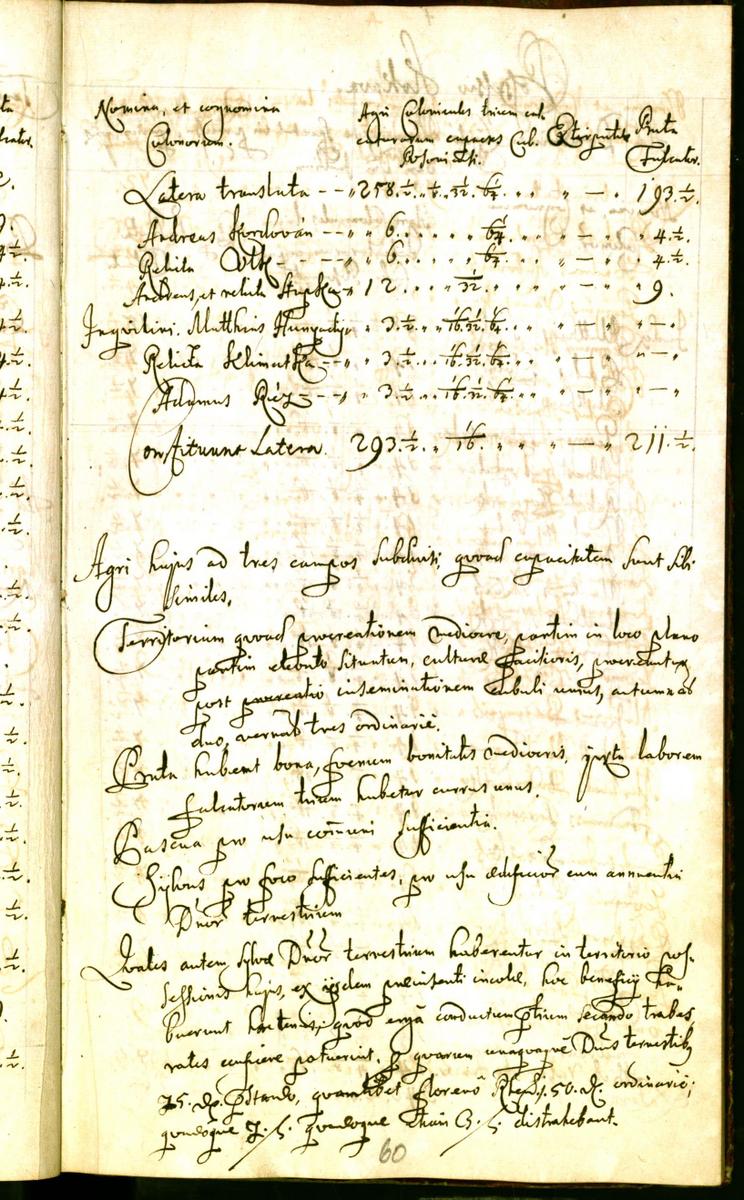 Nomina, et cognomina Colonorum.
Agri Colonicales trium cal-
caturarum capaces Cub.
Posoni
Extirpatitii
Prata
Falcator.
Latera translata — „ 258. 1/2. „ 1/8. 1/32. 1/64. „ „ „ — „ 193. 1/2.
Andreas Kordován — „ „ 6. „ „ „ „ 1/64. „ „ „ — „ „ 4. 1/2.
Relicta Vlk — „ „ 6. „ „ „ „ 1/64. „ „ „ — „ „ 4. 1/2.
Andreas, et relicta Stupka „ 12. „ „ „ 1/32. „ „ „ — „ „ 9.
Inquilini. Matthias Hunyadÿ „ „ 3. 1/2. „ „ 1/16. 1/32. 1/64. „ „ „ — „ „ — „
Relicta Klimatka — „ „ 3. 1/2. „ „ 1/16. 1/32. 1/64. „ „ „ — „ „ — „
Adamus Réz — „ „ 3. 1/2. „ „ 1/16. 1/32. 1/64. „ „ „ — „ „ — „
Constituunt Latera. 293. 1/2. „ „ 1/16. „ „ „ „ — „ 211. 1/2.
Agri hujus ad tres campos subdivisi, quoad capacitatem sunt sibi
similes.
Territorium quoad procreationem mediocre, partim in loco plano
partim elevato situatum, culturæ facilioris, procreantur
post procreatio inseminationem cubuli unius, autumnab
duo, vernab tres ordinarie.
Prata habent bona, foenum bonitatis mediocris, juxta laborem
falcatorum trium habetur currus unus.
Pascua pro usu com̄uni sufficientia.
Sylvas pro foco sufficientes, pro usu ædificior cum annuentia
Dnor terrestrium
Quales autem sylvæ Dnor terrestrium haberentur in territorio pos-
sessionis hujus, ex ijsdem præsenti incolæ, hoc beneficij ha-
buerunt hactenus, quod erga conductium secando trabes
rates conficere potuerint, quarum unaquaque Dnis terrestribus
75. dr. præstando, quamlibet florenô Rhen. 50. Xr. ordinariè;
quandoque 2. f. quandoque etiam 3. f. distrahebant.
60